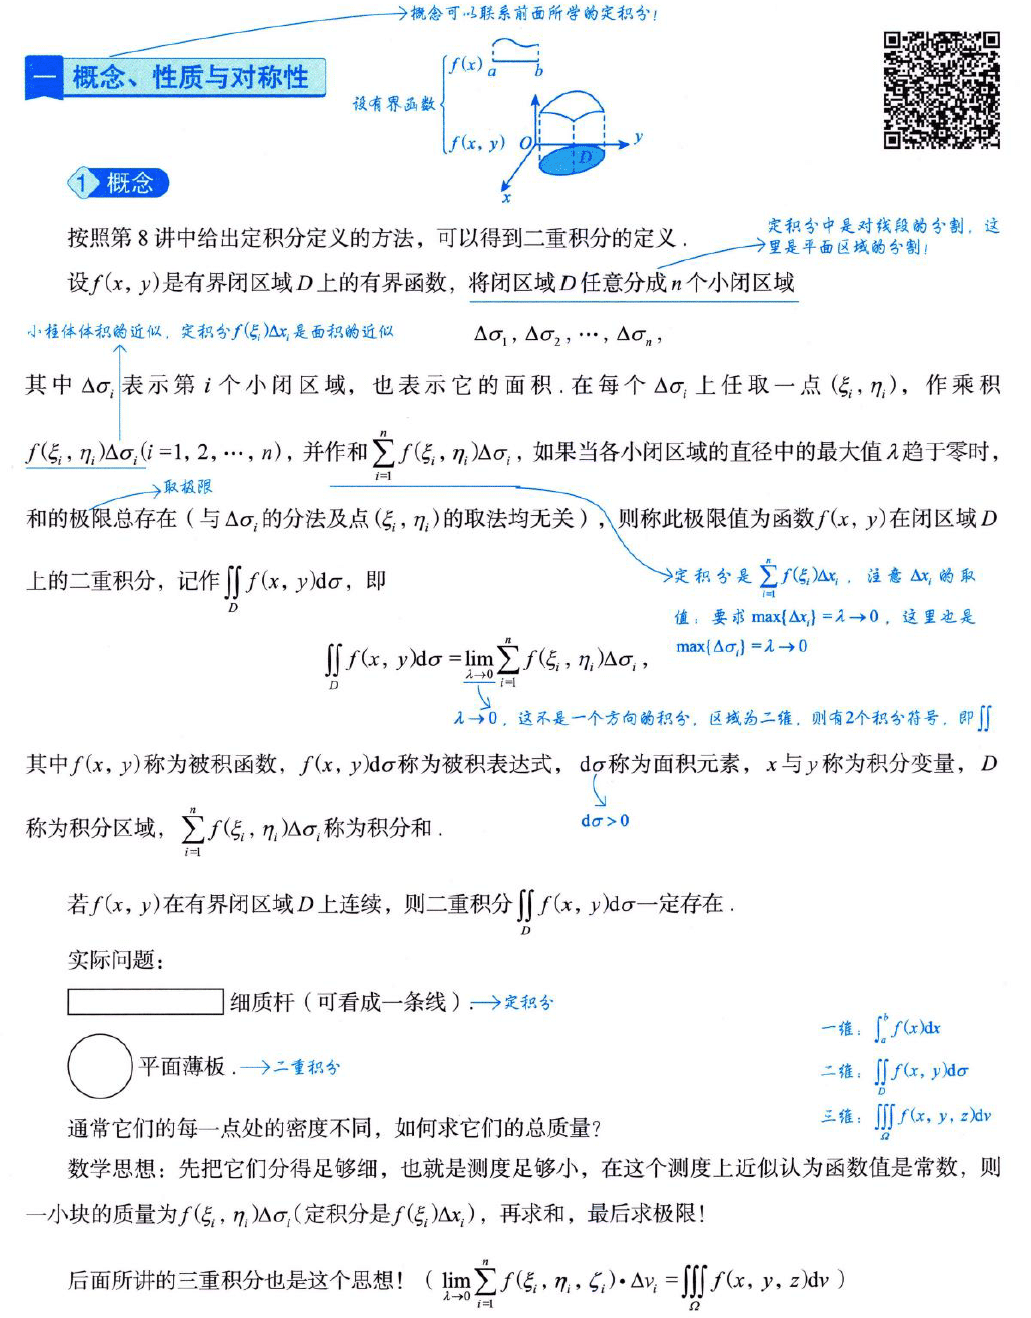 概念可以联系前面所学的定积分!
一 概念、性质与对称性
设有界函数
f(x) a b
f(x, y) O D y
x
1 概念
按照第 8 讲中给出定积分定义的方法，可以得到二重积分的定义.
定积分中是对线段的分割，这
里是平面区域的分割!
设f(x, y)是有界闭区域D上的有界函数，将闭区域D任意分成n个小闭区域
小柱体体积的近似，定积分f(ξᵢ)Δxᵢ是面积的近似
Δσ₁, Δσ₂, ⋯, Δσₙ,
其中 Δσᵢ 表示第 i 个小闭区域，也表示它的面积.在每个 Δσᵢ 上任取一点 (ξᵢ, ηᵢ)，作乘积
f(ξᵢ, ηᵢ)Δσᵢ(i=1, 2, ⋯, n)，并作和∑ⁿᵢ₌₁f(ξᵢ, ηᵢ)Δσᵢ，如果当各小闭区域的直径中的最大值λ趋于零时，
取极限
和的极限总存在（与Δσᵢ的分法及点(ξᵢ, ηᵢ)的取法均无关），则称此极限值为函数f(x, y)在闭区域D
上的二重积分，记作∬_D f(x, y)dσ，即
定积分是∑ⁿᵢ₌₁f(ξᵢ)Δxᵢ，注意Δxᵢ的取
值：要求max{Δxᵢ}=λ→0，这里也是
max{Δσᵢ}=λ→0
∬_D f(x, y)dσ=lim_{λ→0}∑ⁿᵢ₌₁f(ξᵢ, ηᵢ)Δσᵢ,
λ→0，这不是一个方向的积分，区域为二维，则有2个积分符号，即∬
其中f(x, y)称为被积函数，f(x, y)dσ称为被积表达式，dσ称为面积元素，x与y称为积分变量，D
称为积分区域，∑ⁿᵢ₌₁f(ξᵢ, ηᵢ)Δσᵢ称为积分和.
dσ>0
若f(x, y)在有界闭区域D上连续，则二重积分∬_D f(x, y)dσ一定存在.
实际问题：
细质杆（可看成一条线）.→定积分
平面薄板.→二重积分
一维：∫ₐᵇf(x)dx
二维：∬_D f(x, y)dσ
三维：∭_Ω f(x, y, z)dv
通常它们的每一点处的密度不同，如何求它们的总质量?
数学思想：先把它们分得足够细，也就是测度足够小，在这个测度上近似认为函数值是常数，则
一小块的质量为f(ξᵢ, ηᵢ)Δσᵢ(定积分是f(ξᵢ)Δxᵢ)，再求和，最后求极限!
后面所讲的三重积分也是这个思想!（lim_{λ→0}∑ⁿᵢ₌₁f(ξᵢ, ηᵢ, ζᵢ)·Δvᵢ=∭_Ω f(x, y, z)dv）